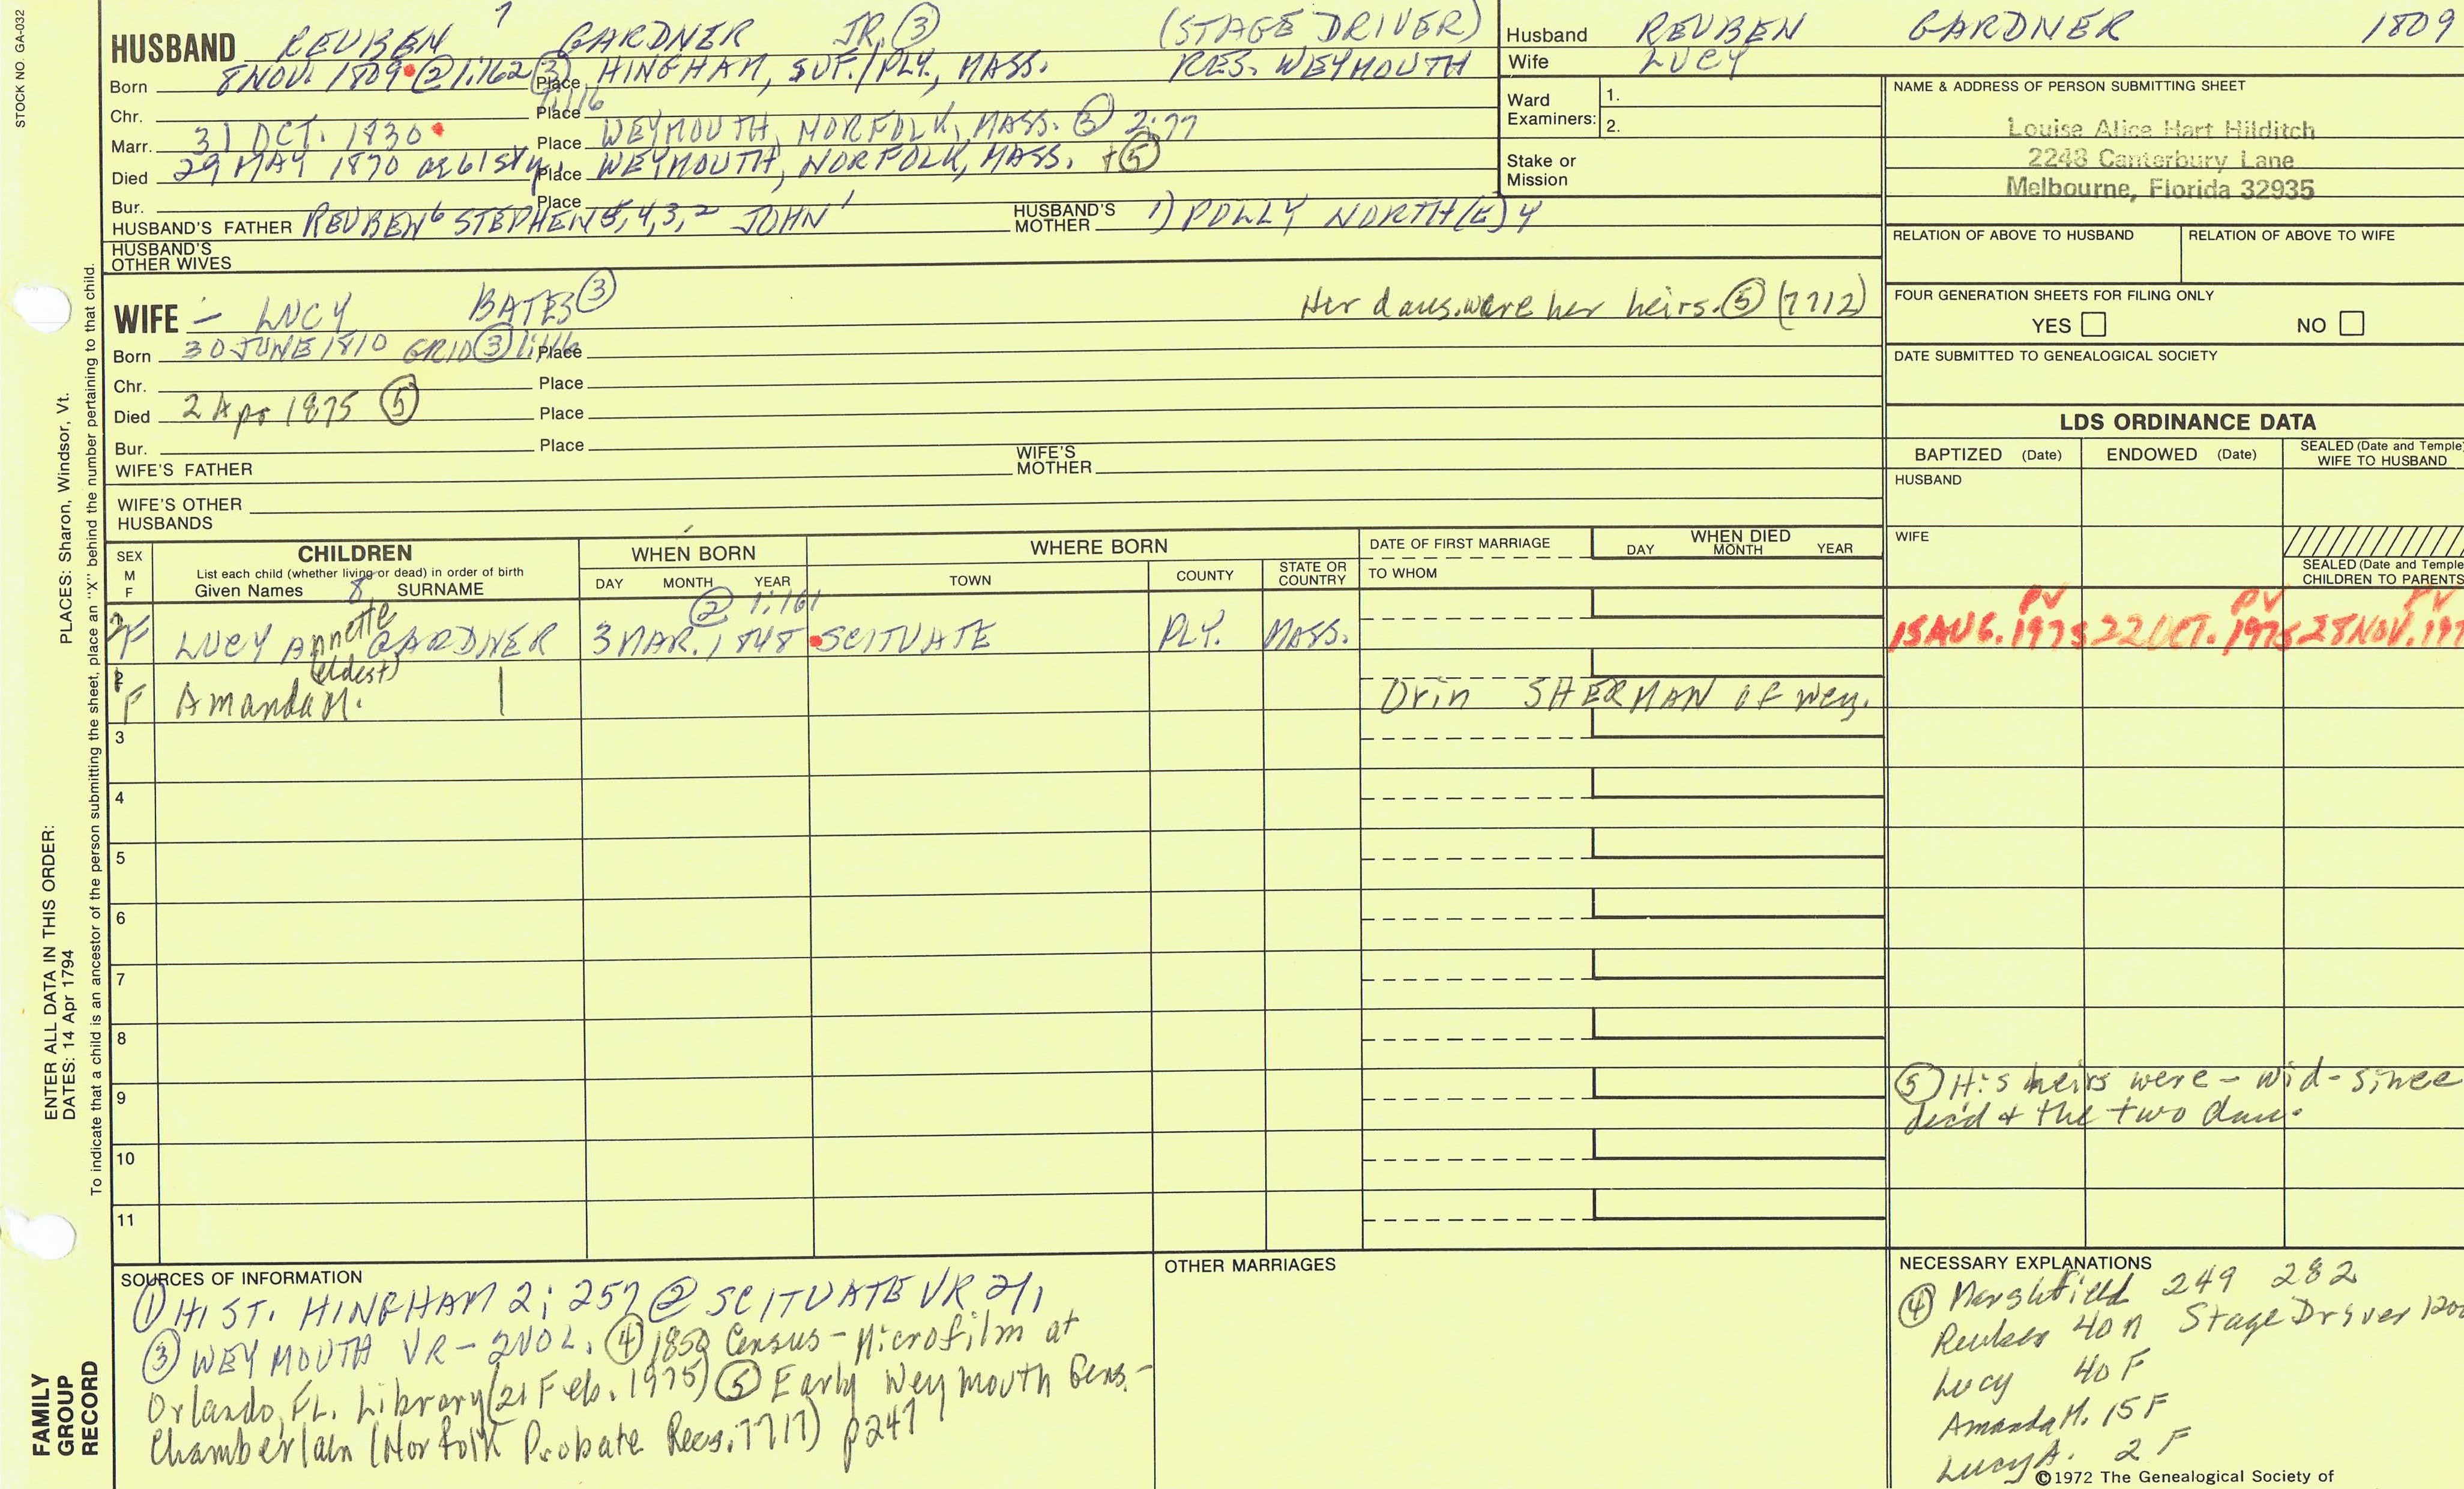 STOCK NO. GA-032
HUSBAND REUBEN 7 GARDNER JR. ③ (STAGE DRIVER)
Born 8 NOV. 1809 ② 1:162 ③ 1:116 Place HINGHAM, SUF./PLY., MASS. RES. WEYMOUTH
Chr. Place
Marr. 31 OCT. 1830 Place WEYMOUTH, NORFOLK, MASS. ③ 2:77
Died 29 MAY 1870 Place WEYMOUTH, NORFOLK, MASS. + ⑤
Bur. Place
HUSBAND'S FATHER REUBEN 6 STEPHEN 5,4,3,2 JOHN 1 HUSBAND'S MOTHER 1) POLLY NORTH(E)Y
HUSBAND'S OTHER WIVES
WIFE - LUCY BATES ③ Her daus. were her heirs. ⑤ (7712)
Born 30 JUNE 1810 GR10 ③ 1:116 Place
Chr. Place
Died 2 Apr 1875 ⑤ Place
Bur. Place
WIFE'S FATHER WIFE'S MOTHER
WIFE'S OTHER HUSBANDS
Husband REUBEN GARDNER 1809
Wife LUCY
Ward Examiners: 1.
2.
Stake or Mission
NAME & ADDRESS OF PERSON SUBMITTING SHEET
Louise Alice Hart Hilditch
2248 Canterbury Lane
Melbourne, Florida 32935
RELATION OF ABOVE TO HUSBAND RELATION OF ABOVE TO WIFE
FOUR GENERATION SHEETS FOR FILING ONLY
YES NO
DATE SUBMITTED TO GENEALOGICAL SOCIETY
LDS ORDINANCE DATA
BAPTIZED (Date) ENDOWED (Date) SEALED (Date and Temple) WIFE TO HUSBAND
HUSBAND
WIFE
SEALED (Date and Temple) CHILDREN TO PARENTS
SEX M F
CHILDREN
List each child (whether living or dead) in order of birth
Given Names 8 SURNAME
WHEN BORN
DAY MONTH YEAR
WHERE BORN
TOWN COUNTY STATE OR COUNTRY
DATE OF FIRST MARRIAGE
TO WHOM
WHEN DIED
DAY MONTH YEAR
② 1:161
2 F LUCY Annette GARDNER 3 MAR. 1848 SCITUATE PLY. MASS. PV PV PV
15 AUG. 1975 22 OCT. 1975 28 NOV. 197
(eldest)
F Amanda M. Orin SHERMAN of Wey.
3
4
5
6
7
8
9
10
11
⑤ His heirs were - wid - since
dec'd & the two daus.
SOURCES OF INFORMATION
① HIST. HINGHAM 2; 257 ② SCITUATE VR
③ WEYMOUTH VR - 2 VOL. ④ 1850 Census - Microfilm at
Orlando, FL. Library (21 Feb. 1975) ⑤ Early Weymouth Gens. -
Chamberlain (Norfolk Probate Recs. 7717) p 247
OTHER MARRIAGES
NECESSARY EXPLANATIONS
④ Marshfield 249 282
Reuben 40 M Stage Driver
Lucy 40 F
Amanda M. 15 F
Lucy A. 2 F
©1972 The Genealogical Society of
ENTER ALL DATA IN THIS ORDER:
DATES: 14 Apr 1794 PLACES: Sharon, Windsor, Vt.
To indicate that a child is an ancestor of the person submitting the sheet, place an "X" behind the number pertaining to that child.
FAMILY GROUP RECORD